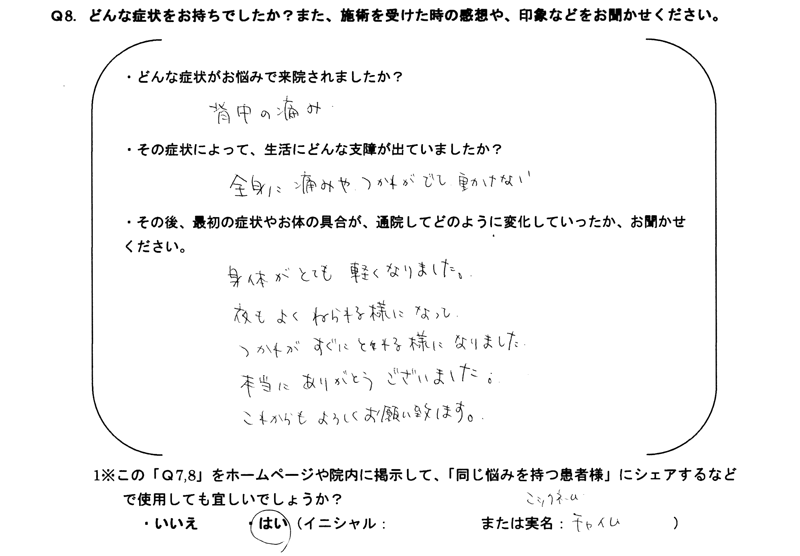 Q8. どんな症状をお持ちでしたか？また、施術を受けた時の感想や、印象などをお聞かせください。
・どんな症状がお悩みで来院されましたか？
背中の痛み
・その症状によって、生活にどんな支障が出ていましたか？
全身に痛みや、つかれがでて、動かけない
・その後、最初の症状やお体の具合が、通院してどのように変化していったか、お聞かせ
ください。
身体がとても軽くなりました。
夜もよくねられる様になって、
つかれがすぐにとれる様になりました。
本当にありがとうございました。
これからもよろしくお願い致します。
1※この「Q7,8」をホームページや院内に掲示して、「同じ悩みを持つ患者様」にシェアするなど
で使用しても宜しいでしょうか？
ニックネーム
・いいえ ・はい（イニシャル： または実名：チャイム ）